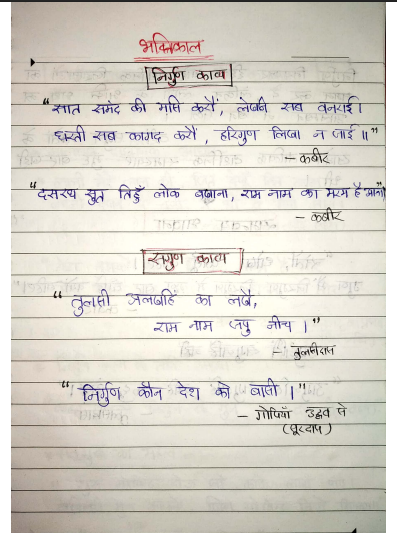 भक्तिकाल
निर्गुण काव्य
"सात समंद की मसि करौं, लेखनी सब वनराई।
धरती सब कागद करौं, हरिगुण लिखा न जाई॥"
- कबीर
"दसरथ सुत तिहुँ लोक बखाना, राम नाम का मरम है आना"
- कबीर
सगुण काव्य
"तुलसी अलखहिं का लखें,
राम नाम जपु नीच।"
- तुलसीदास
"निर्गुण कौन देश को बासी।"
- गोपियाँ उद्धव से
(सूरदास)